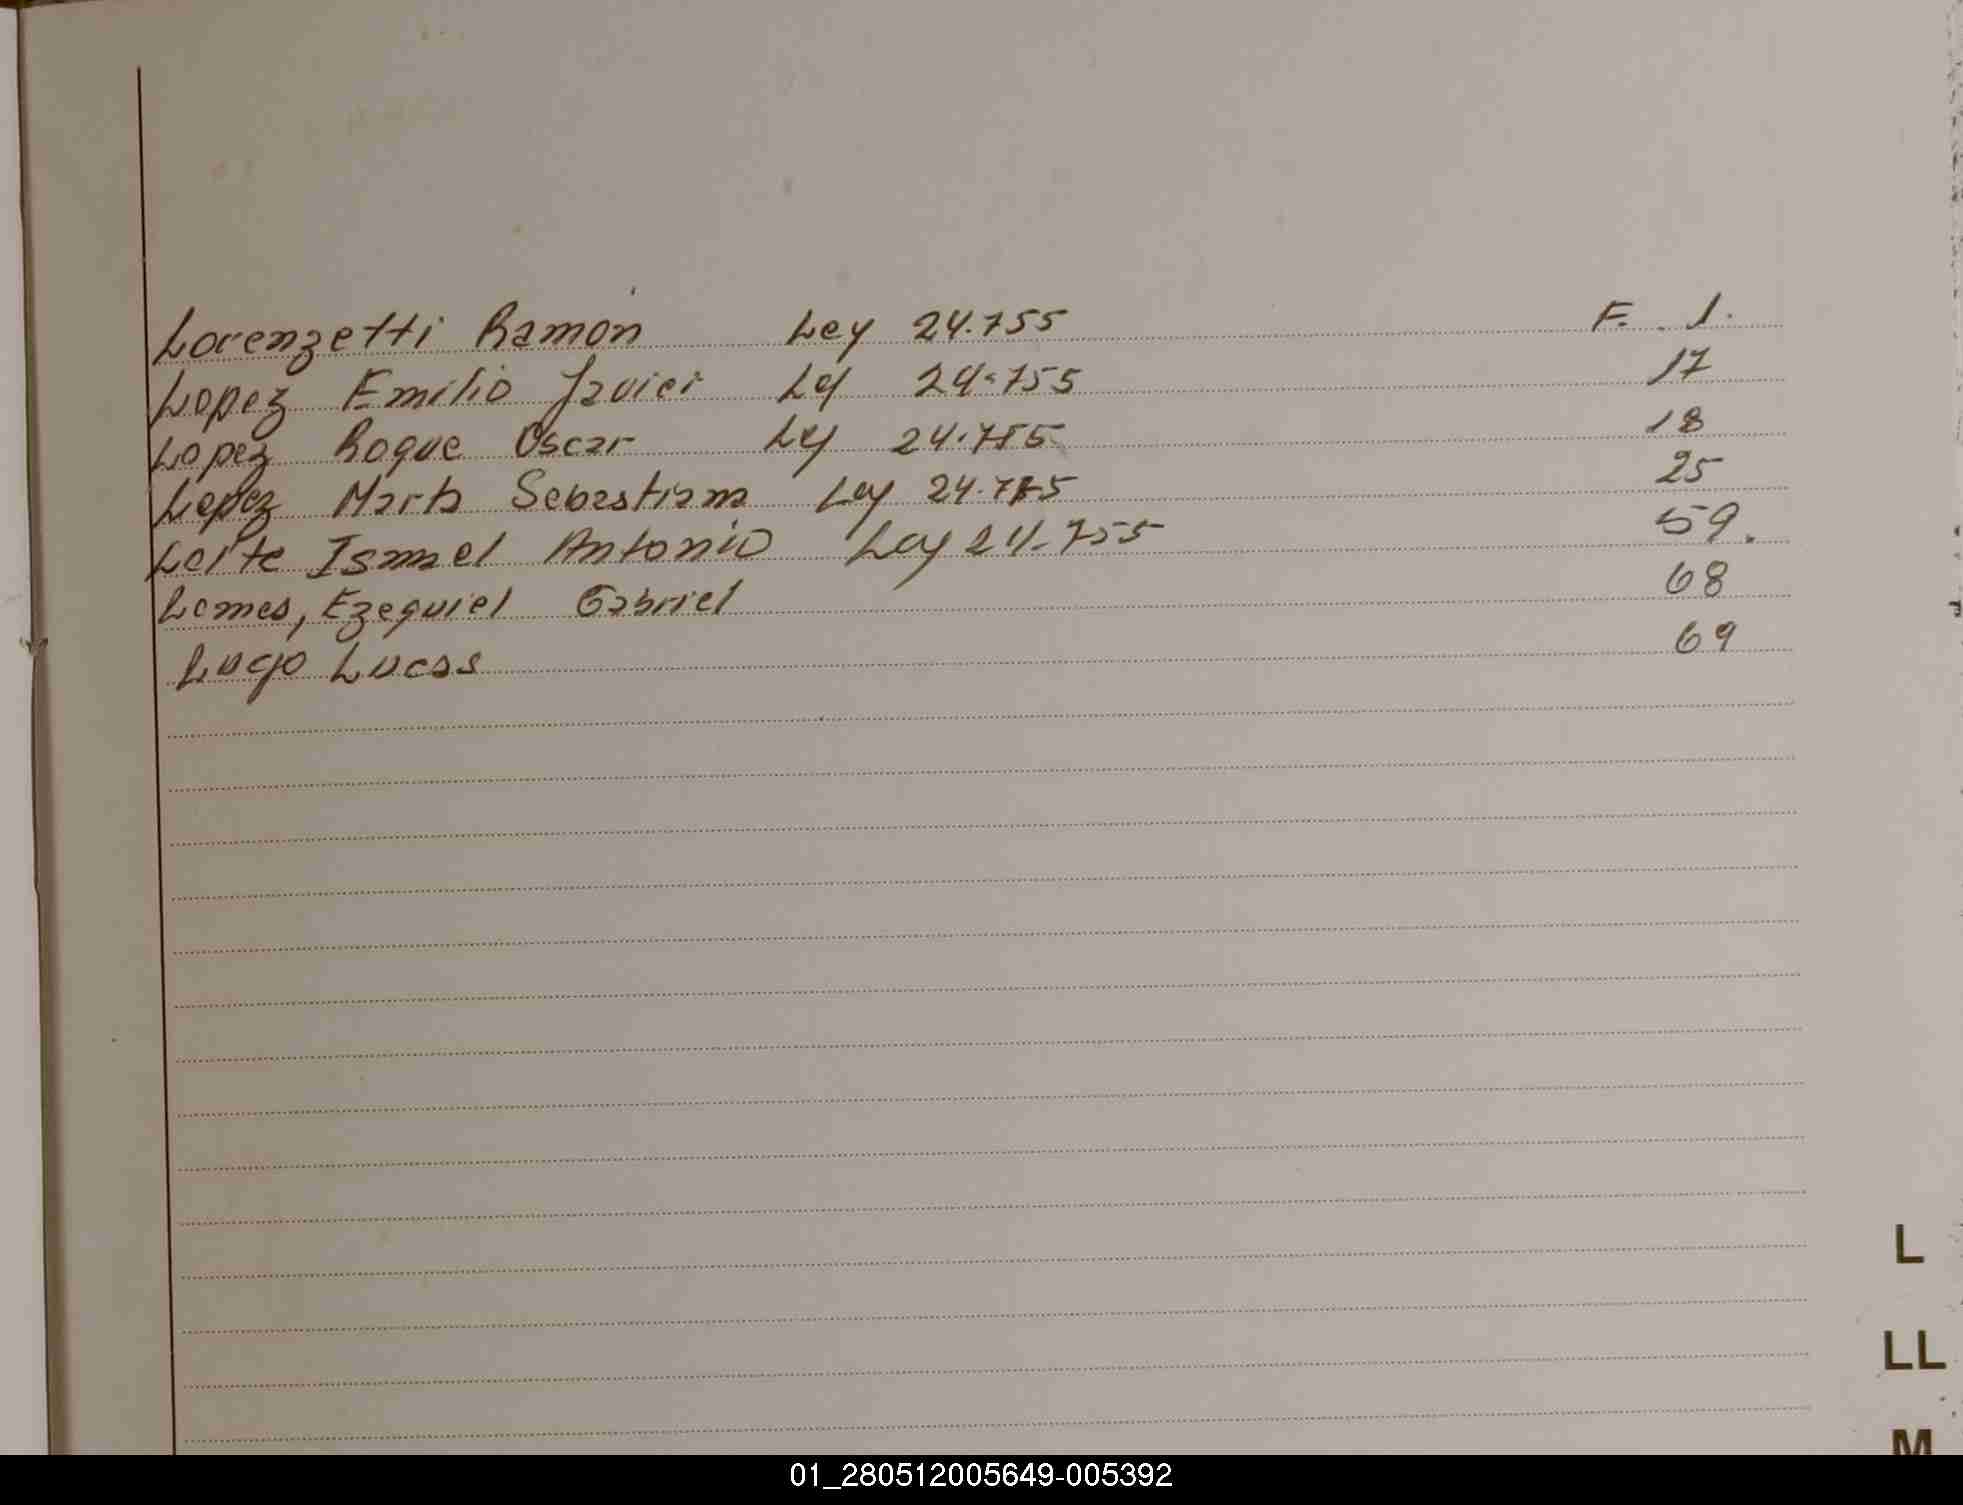 Lorenzetti Ramon Ley 24.755 F. 1.
Lopez Emilio Javier Ley 24.755 17
Lopez Roque Oscar Ley 24.755 18
Lopez Marta Sebastiana Ley 24.755 25
Leite Ismael Antonio Ley 24.755 59.
Lemes, Ezequiel Gabriel 68
Lugo Lucas 69
L
LL
M
01_280512005649-005392